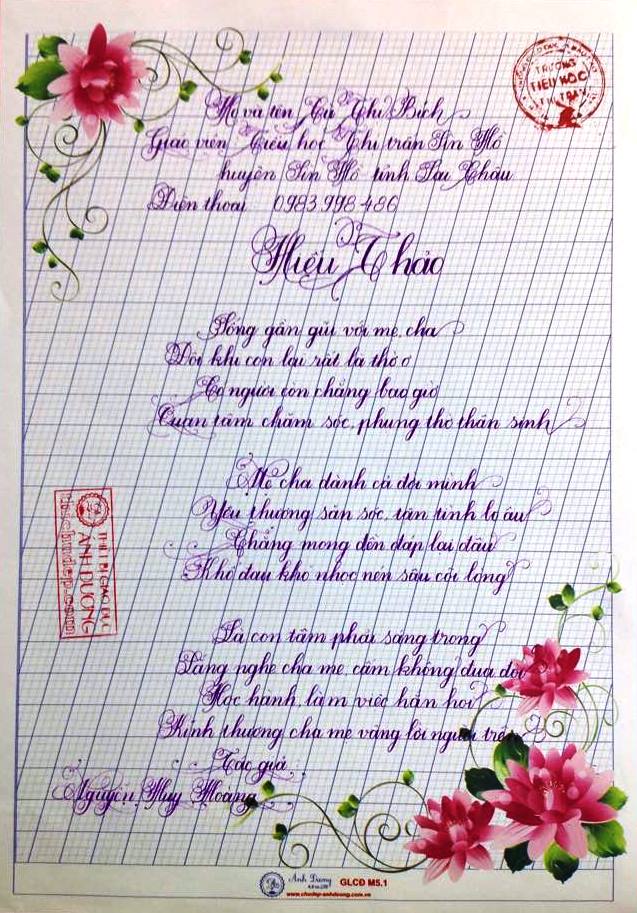 Họ và tên Cù Thị Bích
Giáo viên Tiểu học Thị trấn Sìn Hồ
huyện Sìn Hồ tỉnh Lai Châu
Điện thoại 0983.998.486
Hiếu Thảo
Sống gần gũi với mẹ, cha
Đôi khi con lại rất là thờ ơ
Có người còn chẳng bao giờ
Quan tâm chăm sóc, phụng thờ thân sinh
Mẹ cha dành cả đời mình
Yêu thương săn sóc, tận tình lo âu
Chẳng mong đền đáp lại đâu
Khổ đau khó nhọc nén sâu cõi lòng
Là con tâm phải sáng trong
Lắng nghe cha mẹ, cấm không đua đòi
Học hành, làm việc hẳn hoi
Kính thương cha mẹ vâng lời người trên
Tác giả:
Nguyễn Huy Hoàng
TRƯỜNG
TIỂU HỌC
THỊ TRẤN
THIẾT BỊ GIÁO DỤC
ÁNH DƯƠNG
Ánh Dương
GLCĐ M5.1
www.chudep-anhduong.com.vn